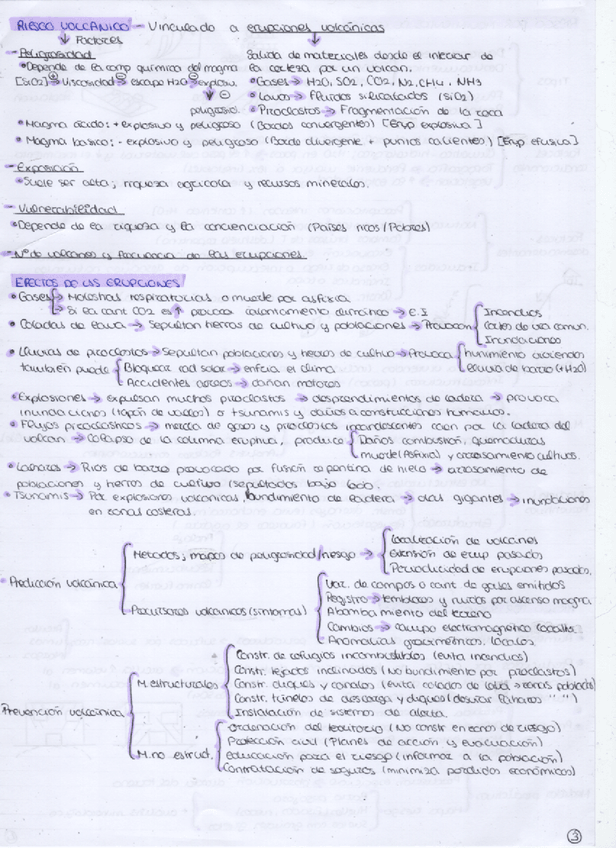 RIESGO VOLCÁNICO - Vinculado a erupciones volcánicas
↓ Factores
- Peligrosidad
Salida de materiales desde el interior de la corteza por un volcán.
• Depende de la comp química del magma
[SiO2] → Viscosidad → escape H2O → explosiv.
↓ peligrosid.
• Gases → H2O, SO2, CO2, N2, CH4, NH3
• Lavas → Fluidos silicatados (SiO2)
• Piroclastos → Fragmentación de la roca
• Magma ácido: + explosivo y peligroso (Bordes convergentes) [Erup explosiva]
• Magma básico: - explosivo y peligroso (Borde divergente + puntos calientes) [Erup efusiva]
- Exposición
• Suele ser alta; riqueza agrícola y recursos minerales.
- Vulnerabilidad
• Depende de la riqueza y la concienciación (Países ricos/Pobres)
- Nº de volcanes y frecuencia de las erupciones
EFECTOS DE LAS ERUPCIONES
• Gases → Molestias respiratorias o muerte por asfixia
→ Si la cant CO2 es ↑ provoca calentamiento climático → E.I
• Coladas de lava → Sepultan tierras de cultivo y poblaciones → Provocan
Incendios
Cortes de vías comun.
Inundaciones
• Lluvias de piroclastos → Sepultan poblaciones y tierras de cultivo → Provoca
hundimiento viviendas
lluvia de barro (+H2O)
también puede
Bloquea rad solar → enfría el clima
Accidentes aéreos → dañan motores
• Explosiones → expulsan muchos piroclastos → desprendimientos de ladera → provoca
inundaciones (tapón de valles) o tsunamis y daños a construcciones humanas.
• Flujos piroclásticos → mezcla de gases y piroclastos incandescentes caen por la ladera del
volcán → colapso de la columna eruptiva, produce
Daños combustión, quemaduras
muerte (Asfixia) y arrasamiento cultivos.
• Lahares → Ríos de barro provocado por fusión repentina de hielo → arrasamiento de
poblaciones y tierras de cultivo (sepultados bajo lodo.
• Tsunamis → Por explosiones volcánicas, hundimiento de caldera → olas gigantes → inundaciones
en zonas costeras.
• Predicción volcánica
Métodos; mapas de peligrosidad/riesgo →
Localización de volcanes
Extensión de erup pasadas
Periodicidad de erupciones pasadas.
Precursores volcánicos (síntomas)
Var. de campos o cant de gases emitidos
Registro → temblores y ruidos por ascenso magma
Abombamiento del terreno
Cambios → campo electromagnético locales
Anomalías gravimétric. locales.
Prevención volcánica
M. estructurales
Constr. de refugios incombustibles (evita incendios)
Constr. tejados inclinados (No hundimiento por piroclastos)
Constr. diques y canales (evita coladas de lava → zonas poblada)
Constr. túneles de descarga y diques (desviar lahares " ")
Instalación de sistemas de alerta.
M. no estruct.
Ordenación del territorio (No constr en zonas de riesgo)
Protección civil (Planes de acción y evacuación)
educación para el riesgo (informar a la población)
Contratación de seguros (minimiza pérdidas económicas)
3